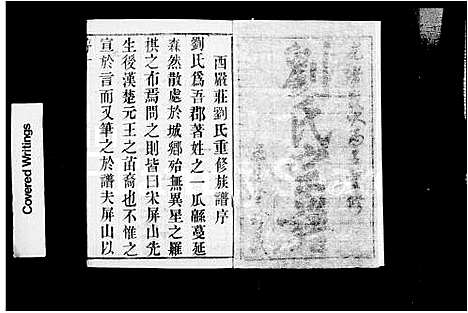 光緒
劉氏宗譜
西嚴莊劉氏重修族譜序
劉氏爲吾郡著姓之一瓜緜蔓延
森然散處於城鄉殆無異星之羅
棋之布焉問之則皆曰宋屏山先
生後漢楚元王之苗裔也不惟之
宣於言而又筆之於譜夫屏山以
Covered Writings